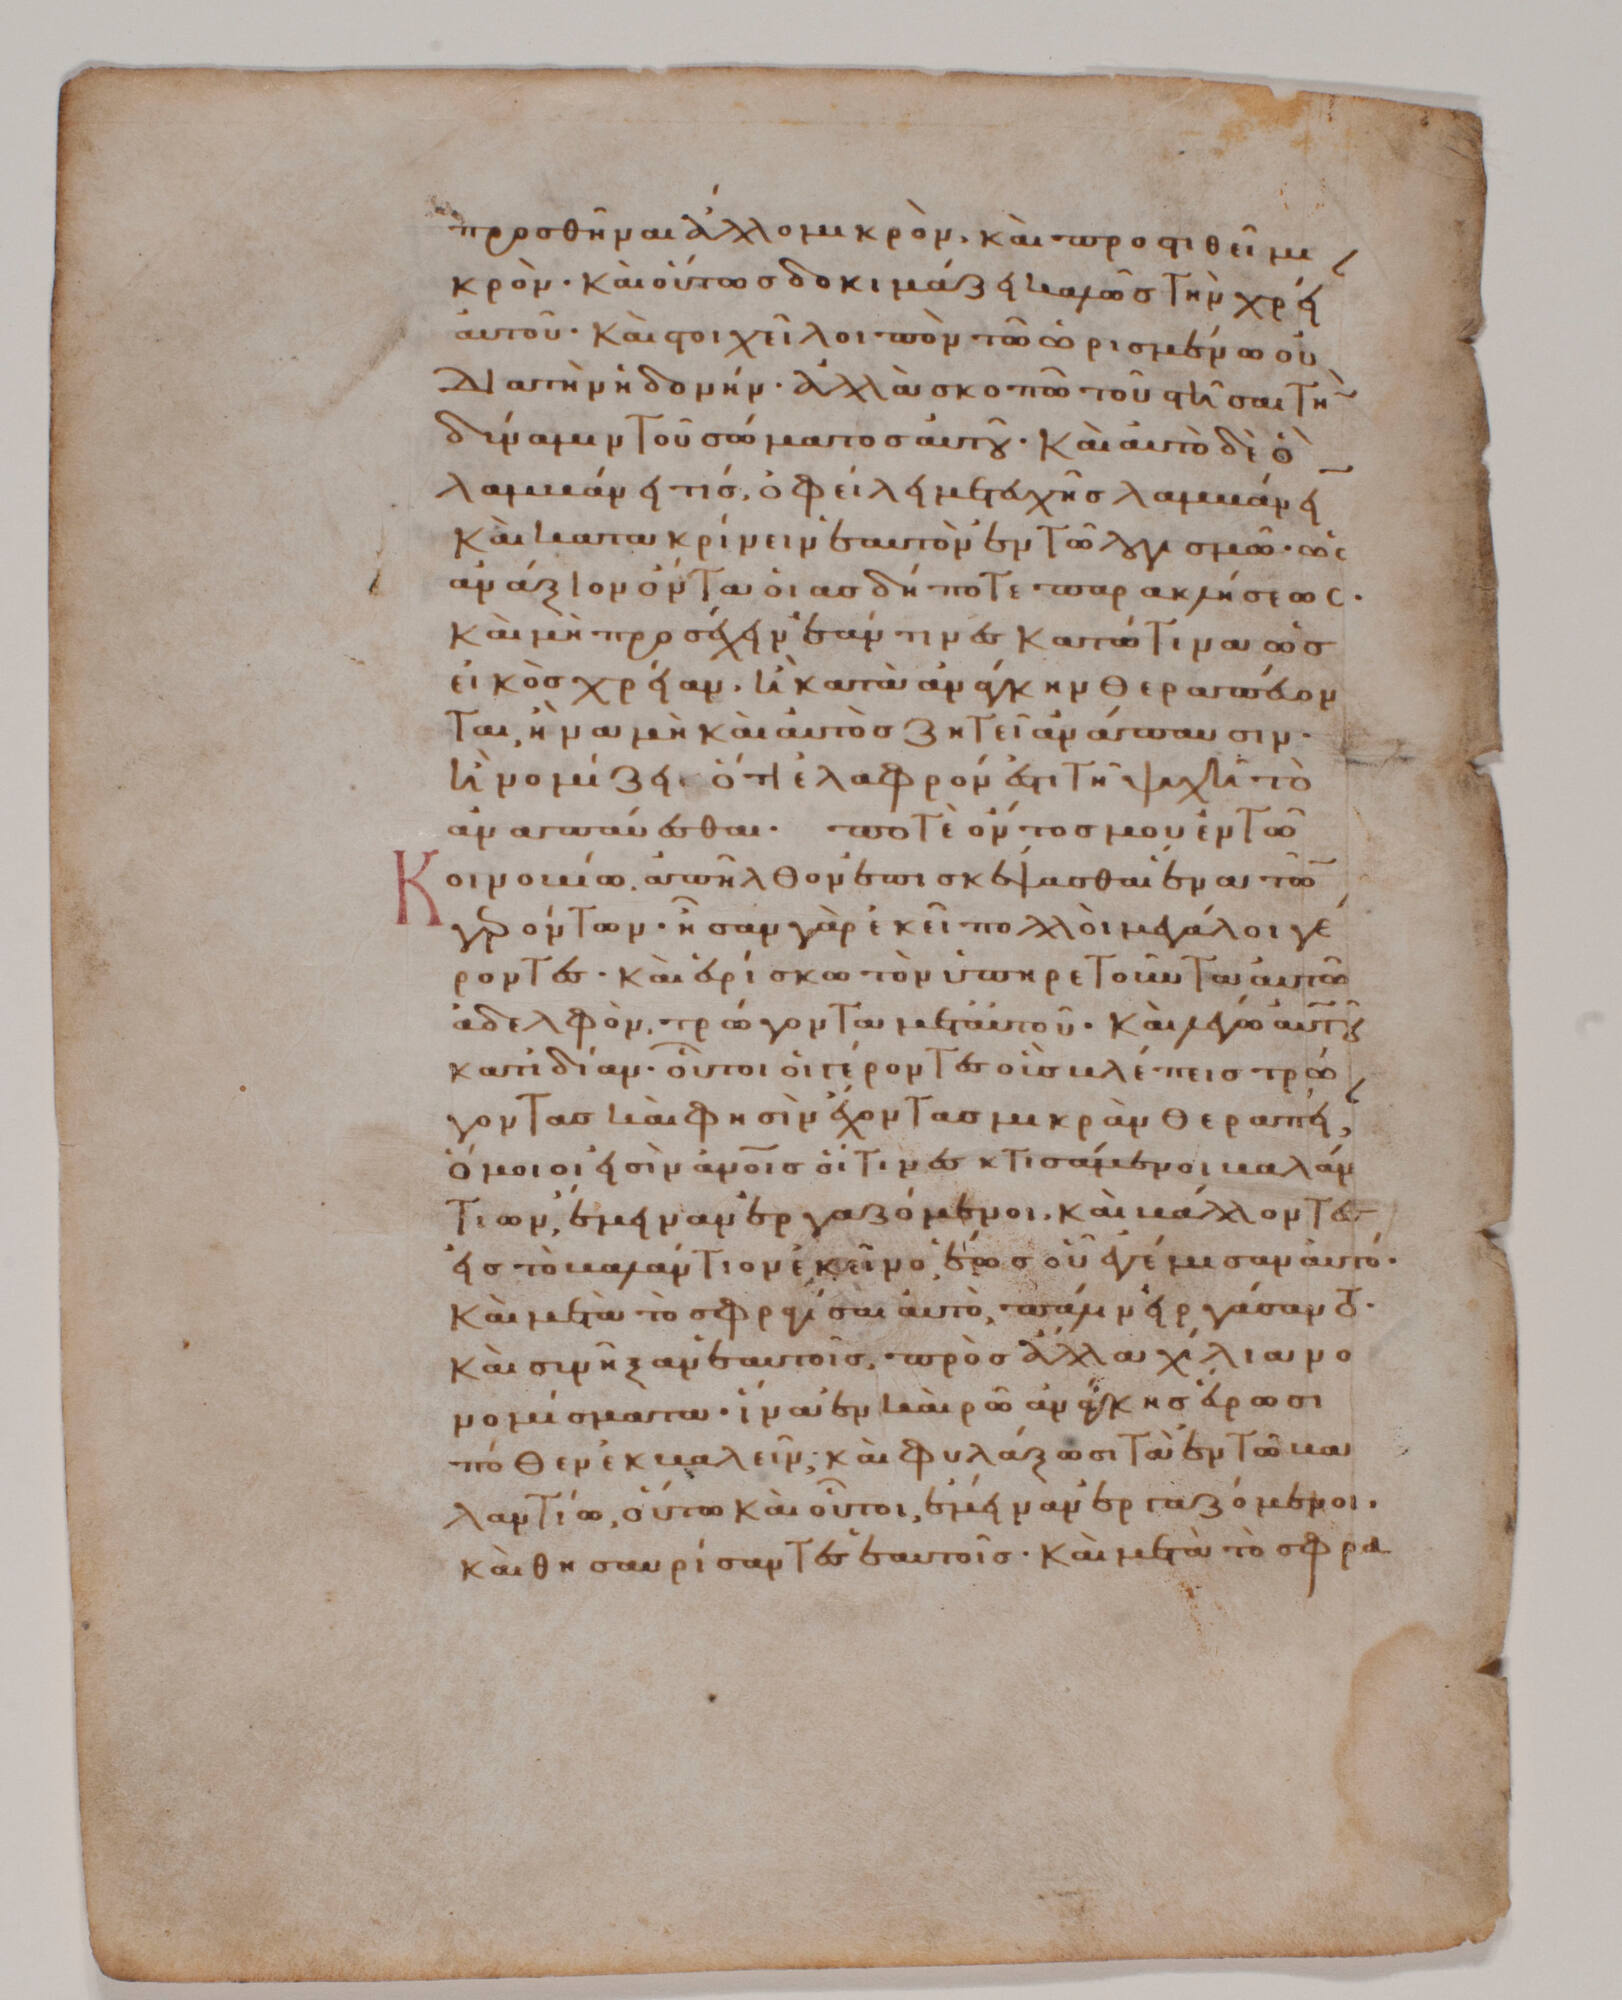 προσθῆναι ἄλλο μικρὸν, καὶ προστιθεῖ μι
κρὸν· καὶ οὕτως δοκιμάζει καλῶς τὴν χρεί
αὐτοῦ· καὶ στοιχεῖ λοιπὸν τῶ ὡρισμένω οὐ
διὰ τὴν ἡδονήν· ἀλλὰ σκοπῶ τοῦ στῆσαι τὴ
δύναμιν τοῦ σώματος αὐτοῦ· καὶ αὐτὸ δὲ ὃ
λαμβάνει τίς, ὀφείλει μετευχῆς λαμβάνει
καὶ κατακρίνειν ἑαυτὸν ἐν τῶ λογισμῶ· ὡς
ἀνάξιον ὄντα οἱασδήποτε παρακλήσεως·
καὶ μὴ προσέχειν ἐάν τινες κατά τινα ὡς
εἰκὸς χρείαν, ἢ κατὰ ἀνάγκην θεραπεύον
ται, ἵνα μὴ καὶ αὐτὸς ζητεῖ ἀνάπαυσιν·
ἢ νομίζει ὅτι ἐλαφρόν ἐστι τῆ ψυχῆ τὸ
ἀναπαύεσθαι· ποτὲ ὄντος μου ἐν τῶ
Κοινοβίω, ἀπῆλθον ἐπισκέψασθαι ἕνα τῶ
γερόντων· ἦσαν γὰρ ἐκεῖ πολλοὶ μεγάλοι γέ
ροντες· καὶ εὑρίσκω τὸν ὑπηρετοῦντα αὐτῶ
ἀδελφὸν, τρώγοντα μεταὐτοῦ· καὶ λέγω αὐτῶ
κατιδίαν· οὗτοι οἱ γέροντες οἷς βλέπεις τρώ
γοντας καί φησιν ἔχοντας μικρὰν θεραπεί,
ὅμοιοί εἰσιν ἀνοῖς οἵτινες κτισάμενοι βαλάν
τιον, ἔμειναν ἐργαζόμενοι, καὶ βάλλοντες
εἰς τὸ βαλάντιον ἐκεῖνο, ἕως οὗ ἐγέμισαν αὐτό·
καὶ μετὰ τὸ σφραγίσαι αὐτὸ, πάλιν εἰργάσαντο·
καὶ συνῆξαν ἑαυτοῖς, πρὸς ἄλλα χίλια νο
νομίσματα· ἵνα ἐν καιρῶ ἀνάγκης εὕρωσι
πόθεν ἐκβαλεῖν, καὶ φυλάξωσι τὰ ἐν τῶ βα
λαντίω, οὕτω καὶ οὗτοι, ἔμειναν ἐργαζόμενοι·
καὶ θησαυρίσαντες ἑαυτοῖς· καὶ μετὰ τὸ σφρα